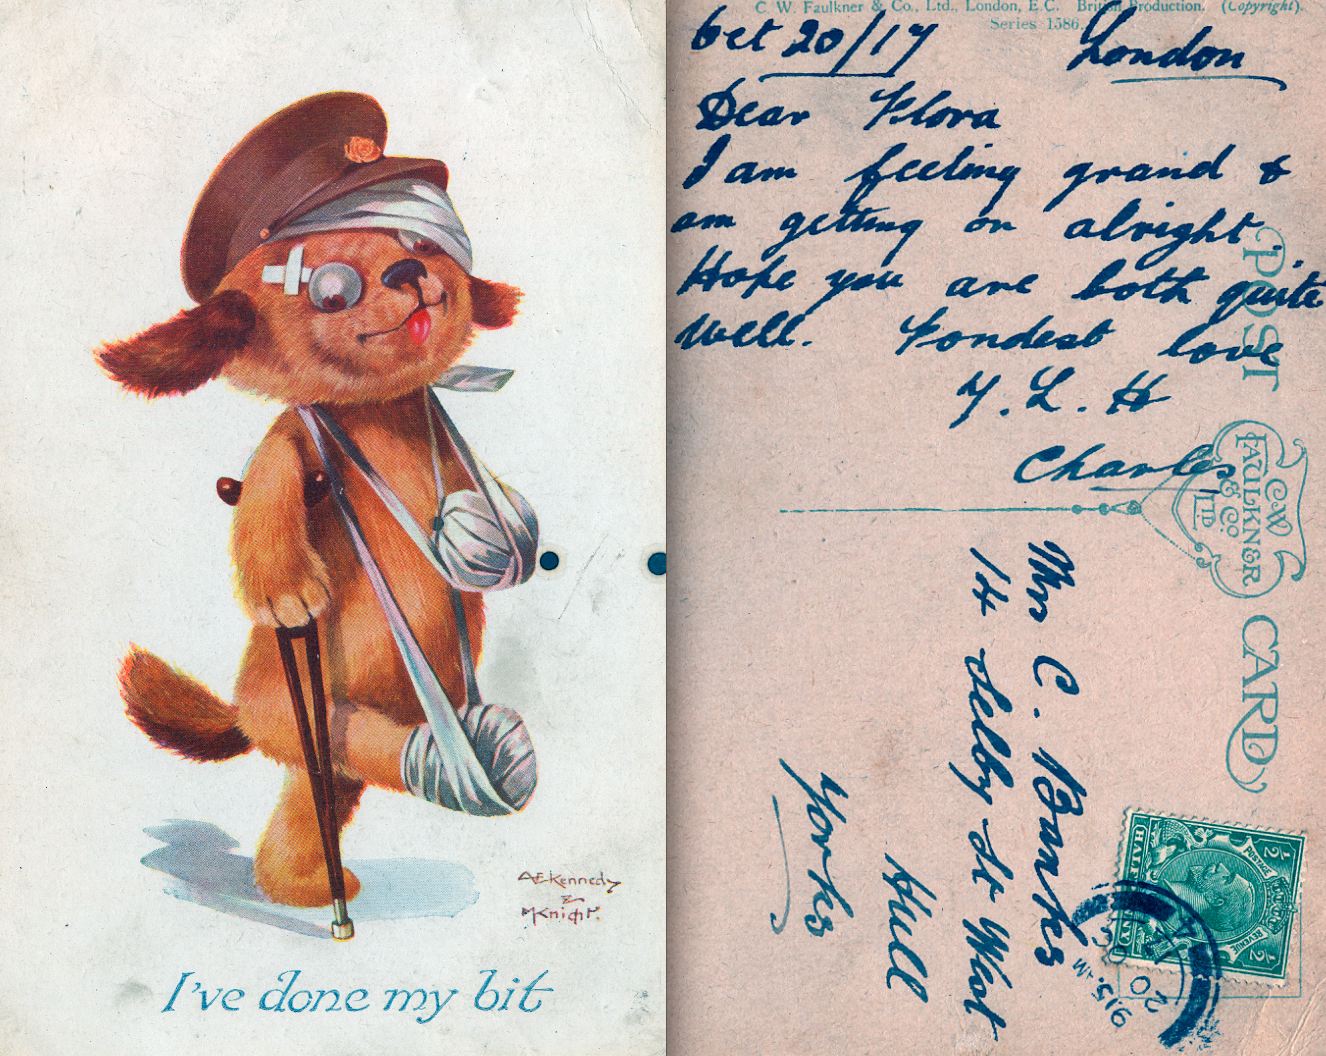 AE Kennedy
&
M Knight.
I've done my bit
C. W. Faulkner & Co., Ltd., London, E.C. British Production. (Copyright).
Series 1586.
Oct 20/17 London
Dear Flora
I am feeling grand &
am getting on alright.
Hope you are both quite
well. Fondest love
Y. L. H
Charles
POST CARD
C.W.
FAULKNER
& CO.
LTD.
Mr C. Banks
14 Selby St West
Hull
Yorks
POSTAGE
REVENUE
HALF
1/2
1/2
9.15 AM
20 OC
17